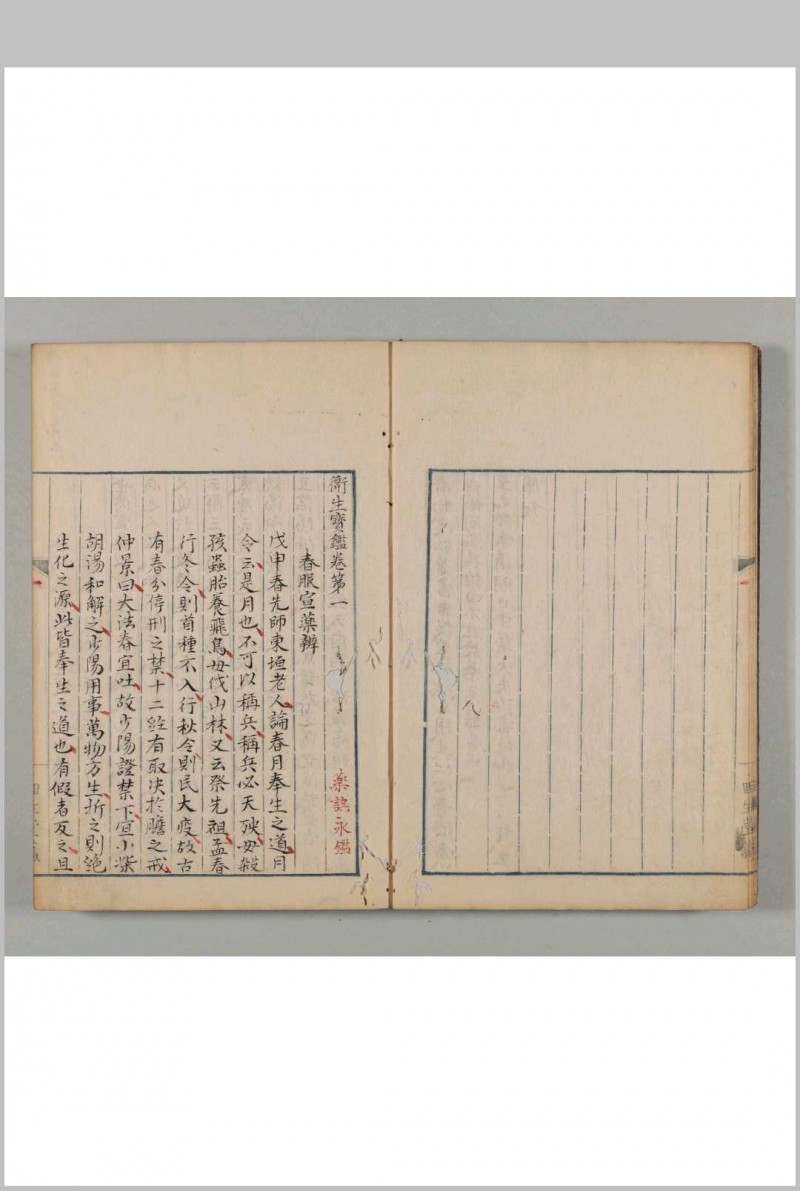 衞生寶鑑卷第一
藥誤永鑑
春服宣藥辨
戊申春先師東垣老人論春月奉生之道月
令云是月也不可以稱兵稱兵必天殃毋殺
孩蟲胎養飛鳥毋伐山林又云祭先祖孟春
行冬令則首種不入行秋令則民大疫故古
有春分停刑之禁十二經有取决於膽之戒
仲景曰大法春宜吐故少陽證禁下宜小柴
胡湯和解之少陽用事萬物方生折之則絶
生化之源此皆奉生之道也有假者反之且